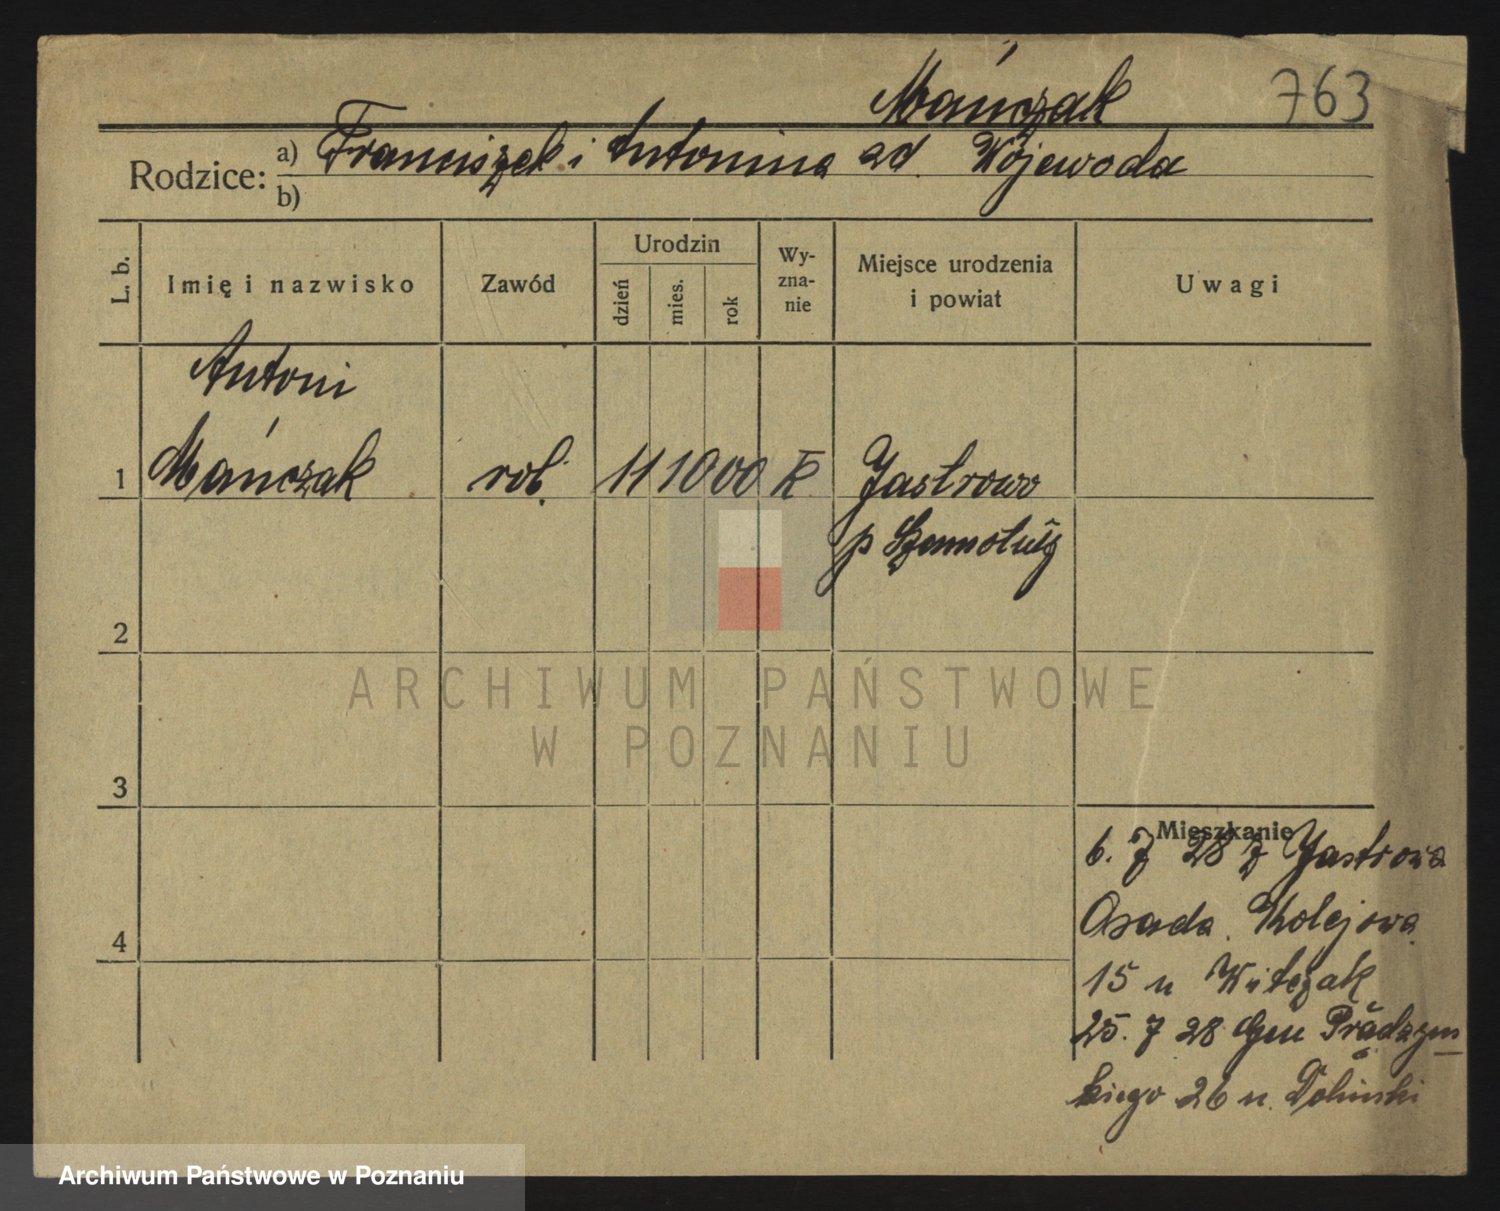 Mańczak 763
Rodzice: a) Franciszek i Antonina zd. Wojewoda
b)
L. b. Imię i nazwisko Zawód Urodzin dzień mies. rok Wy-zna-nie Miejsce urodzenia i powiat Uwagi
Antoni
1 Mańczak rob. 11 10 00 k Jastrowo
p Szamotuły
2
3
4
Mieszkanie
6. 7 28 z Jastrowa
Osada Kolejowa
15 u Witczak
25. 7 28 Gen Prądzyń
skiego 26 u.
ARCHIWUM PAŃSTWOWE
W POZNANIU
Archiwum Państwowe w Poznaniu